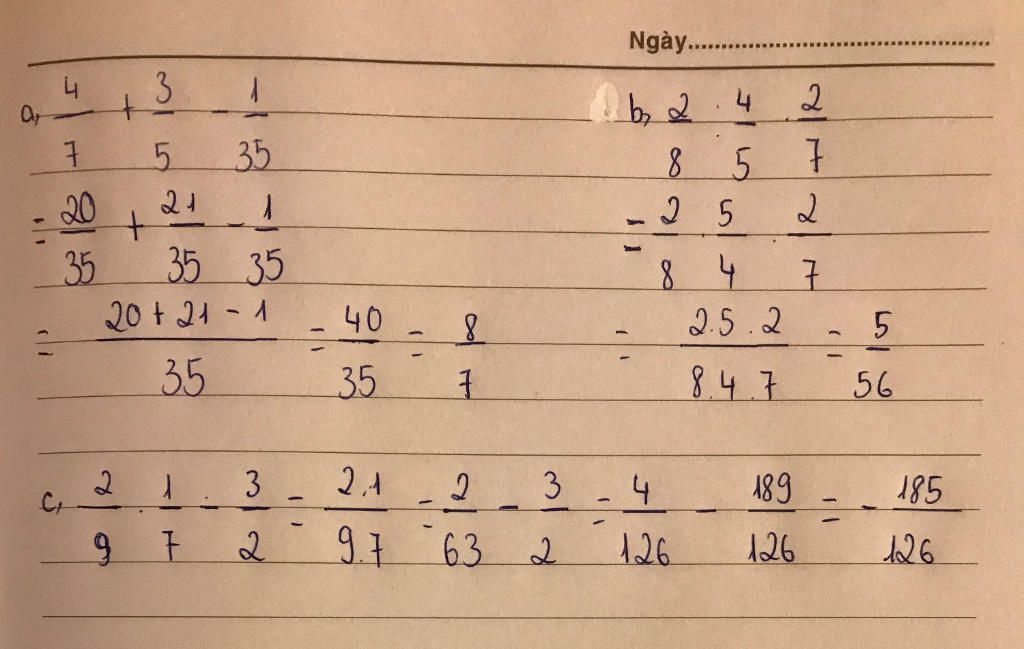 Ngày
a, 4/7 + 3/5 - 1/35
= 20/35 + 21/35 - 1/35
= (20 + 21 - 1)/35 = 40/35 = 8/7
b, 2/8 . 4/5 . 2/7
= 2/8 . 5/4 . 2/7
= (2.5.2)/(8.4.7) = 5/56
c, 2/9 . 1/7 - 3/2 = (2.1)/(9.7) = 2/63 - 3/2 = 4/126 - 189/126 = - 185/126